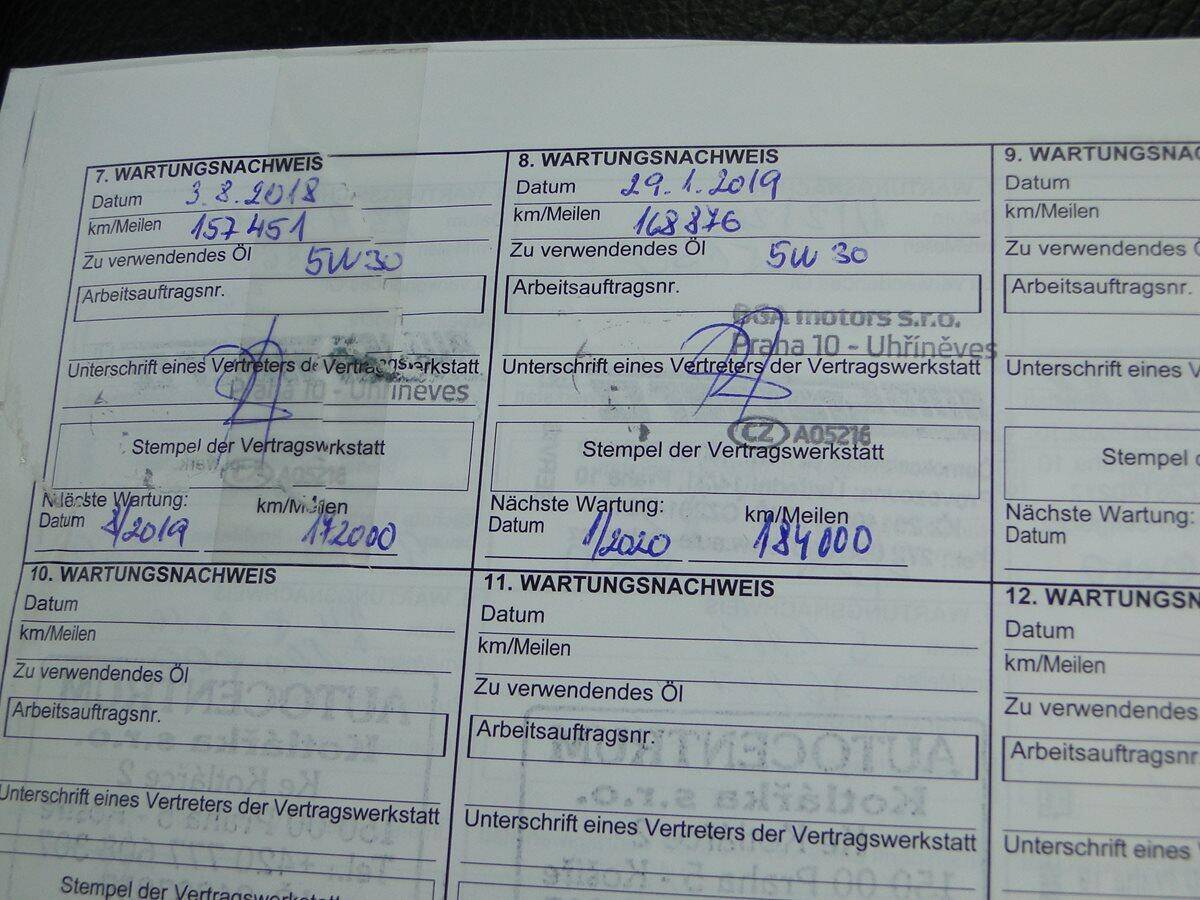 7. WARTUNGSNACHWEIS
Datum 3.8.2018
km/Meilen 157451
Zu verwendendes Öl 5W30
Arbeitsauftragsnr.
Unterschrift eines Vertreters de Vertragswerkstatt
Praha 10 - Uhříněves
Stempel der Vertragswerkstatt
A05216
Nächste Wartung: km/Meilen
Datum /2019 172000
8. WARTUNGSNACHWEIS
Datum 29.1.2019
km/Meilen 168876
Zu verwendendes Öl 5W 30
Arbeitsauftragsnr.
DGA motors s.r.o.
Praha 10 - Uhříněves
Unterschrift eines Vertreters der Vertragswerkstatt
CZ A05216
Stempel der Vertragswerkstatt
Nächste Wartung: km/Meilen
Datum 1/2020 184000
9. WARTUNGSNAC
Datum
km/Meilen
Zu verwendendes Ö
Arbeitsauftragsnr.
Unterschrift eines V
Stempel d
Nächste Wartung:
Datum
10. WARTUNGSNACHWEIS
Datum
km/Meilen
Zu verwendendes Öl
Arbeitsauftragsnr.
Unterschrift eines Vertreters der Vertragswerkstatt
Stempel der Vertragswerkstatt
11. WARTUNGSNACHWEIS
Datum
km/Meilen
Zu verwendendes Öl
Arbeitsauftragsnr.
Unterschrift eines Vertreters der Vertragswerkstatt
12. WARTUNGSN
Datum
km/Meilen
Zu verwendendes
Arbeitsauftragsnr
Unterschrift eines